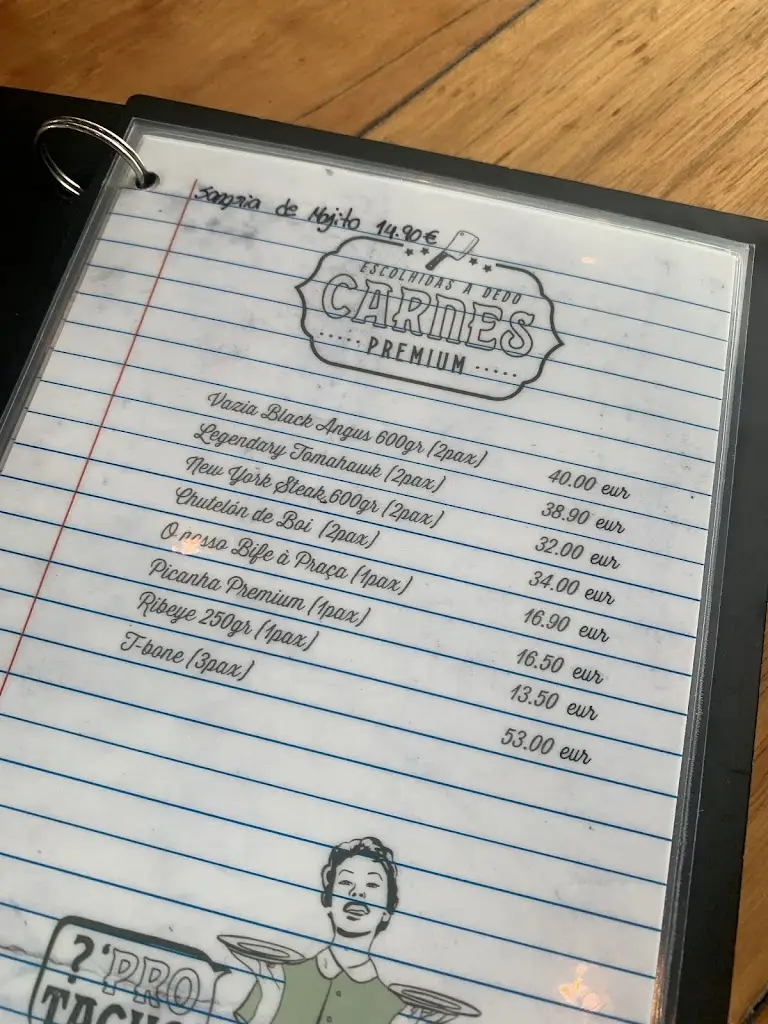 Sangria de Mojito 14.90€
ESCOLHIDAS A DEDO
CARNES
PREMIUM
Vazia Black Angus 600gr (2pax) 40.00 eur
Legendary Tomahawk (2pax) 38.90 eur
New York Steak 600gr (2pax) 32.00 eur
Chutelón de Boi (2pax) 34.00 eur
O nosso Bife à Praça (1pax) 16.90 eur
Picanha Premium (1pax) 16.50 eur
Ribeye 250gr (1pax) 13.50 eur
T-bone (3pax) 53.00 eur
? 'PRO